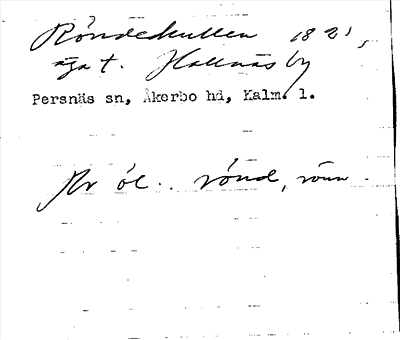 Röndekullen 1821,
äga t. Hallnäs by
Persnäs sn, Åkerbo hd, Kalm. l.
Av öl. rönd, rönn